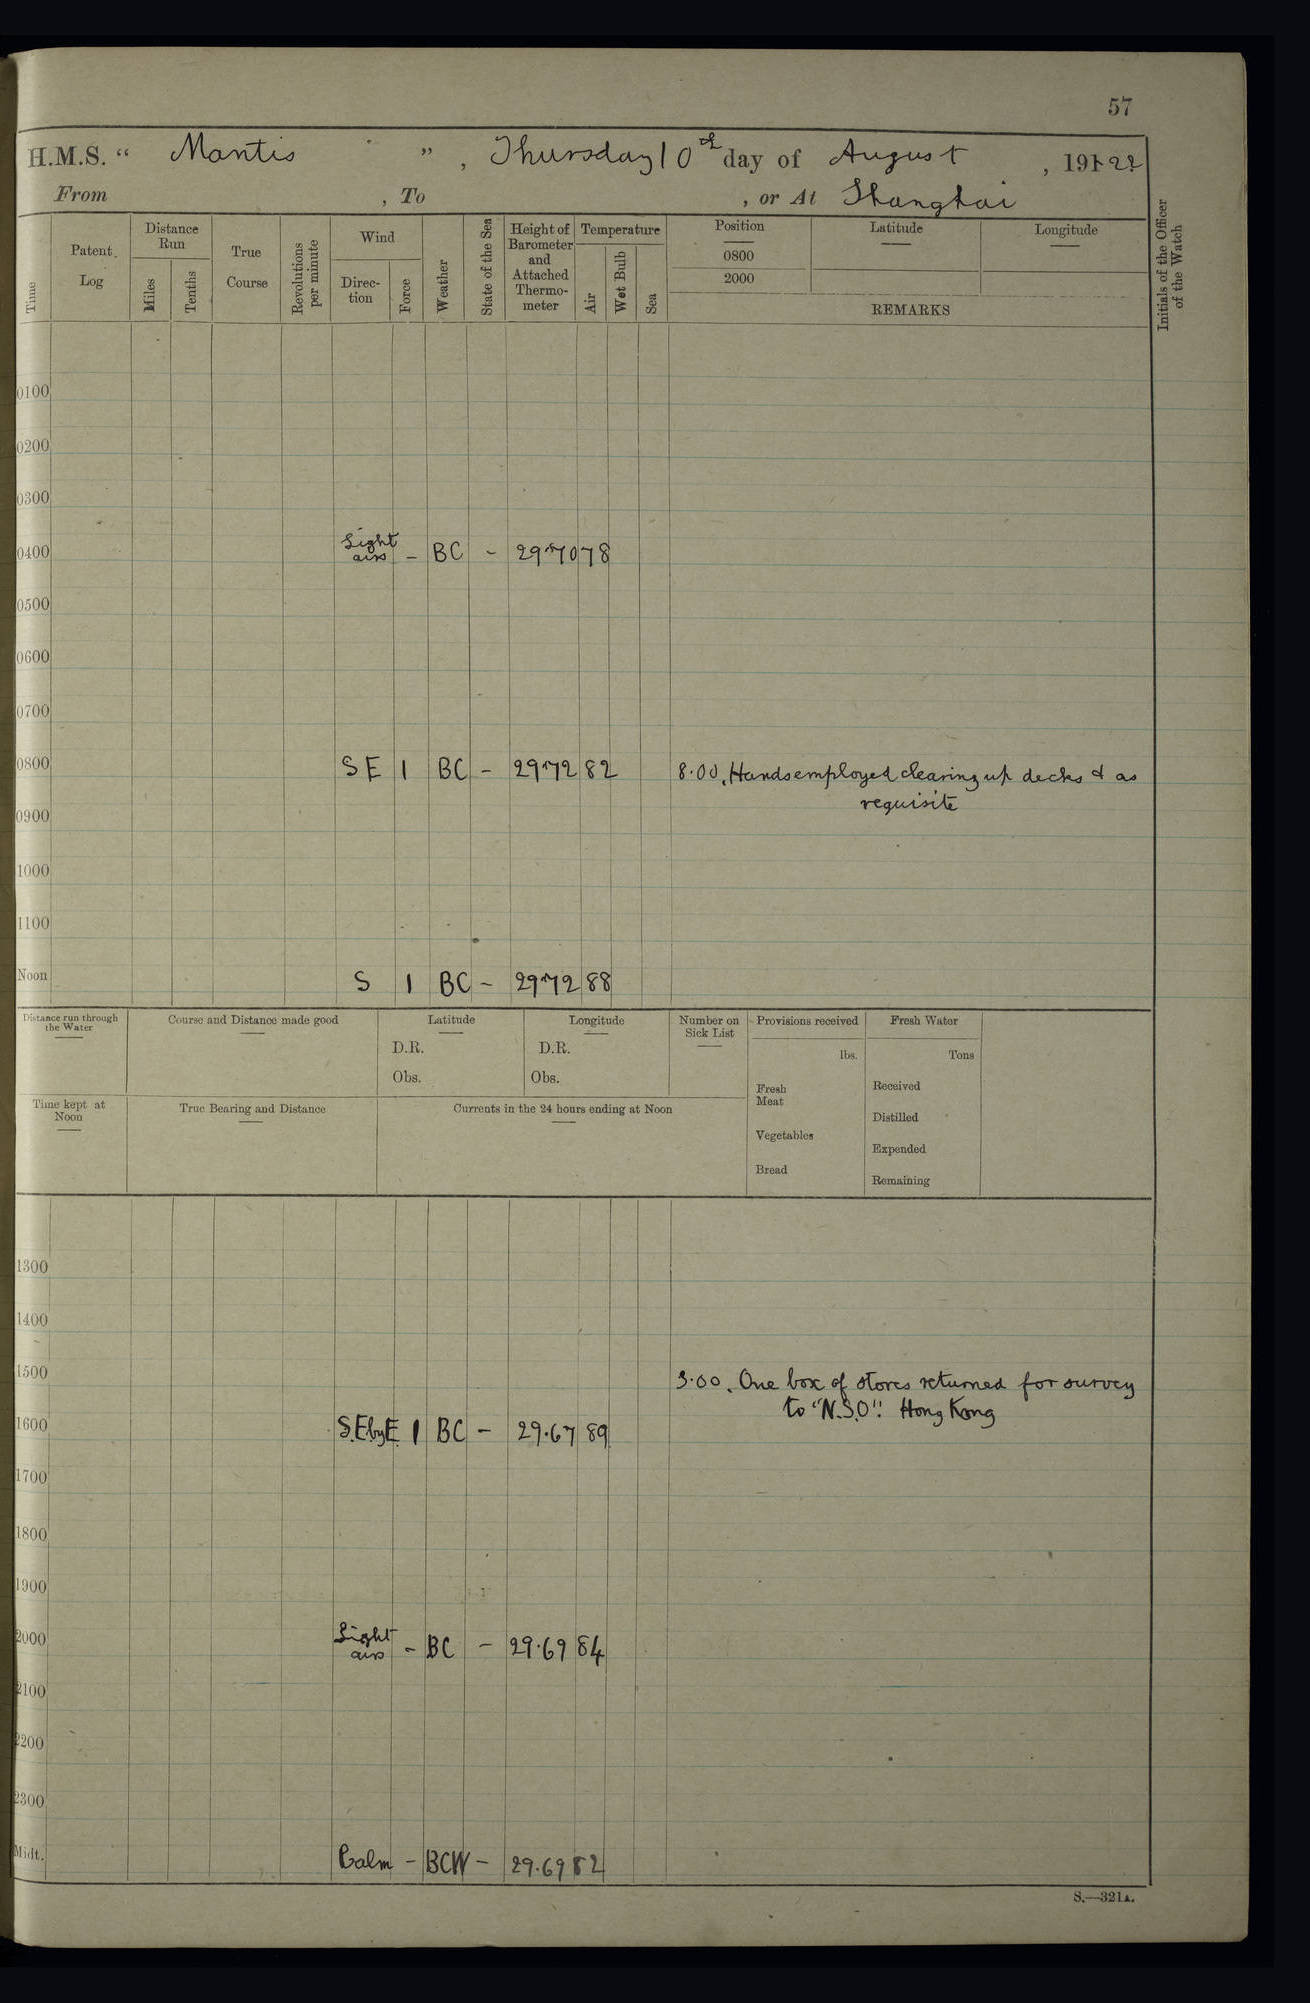 57
H.M.S. “ Mantis ”, Thursday 10th day of August, 191 22
From , To , or At Shanghai
Time
Patent Log
Distance Run
Miles
Tenths
True Course
Revolutions per minute
Wind
Direction
Force
Weather
State of the Sea
Height of Barometer and Attached Thermometer
Temperature
Air
Wet Bulb
Sea
Position
0800
2000
Latitude
Longitude
REMARKS
Initials of the Officer of the Watch
0100
0200
0300
0400 Light airs - BC - 29.70 78
0500
0600
0700
0800 SE 1 BC - 29.72 82 8.00. Hands employed clearing up decks & as
requisite
0900
1000
1100
Noon S 1 BC - 29.72 88
Distance run through the Water
Course and Distance made good
Latitude
D.R.
Obs.
Longitude
D.R.
Obs.
Number on Sick List
Provisions received
lbs.
Fresh Meat
Vegetables
Bread
Fresh Water
Tons
Received
Distilled
Expended
Remaining
Time kept at Noon
True Bearing and Distance
Currents in the 24 hours ending at Noon
1300
1400
1500 3.00. One box of stores returned for survey
to "N.S.O". Hong Kong
1600 S.E by E. 1 BC - 29.67 89
1700
1800
1900
2000 Light airs - BC - 29.69 84
2100
2200
2300
Midt. Calm - BCW - 29.69 82
S.—321A.